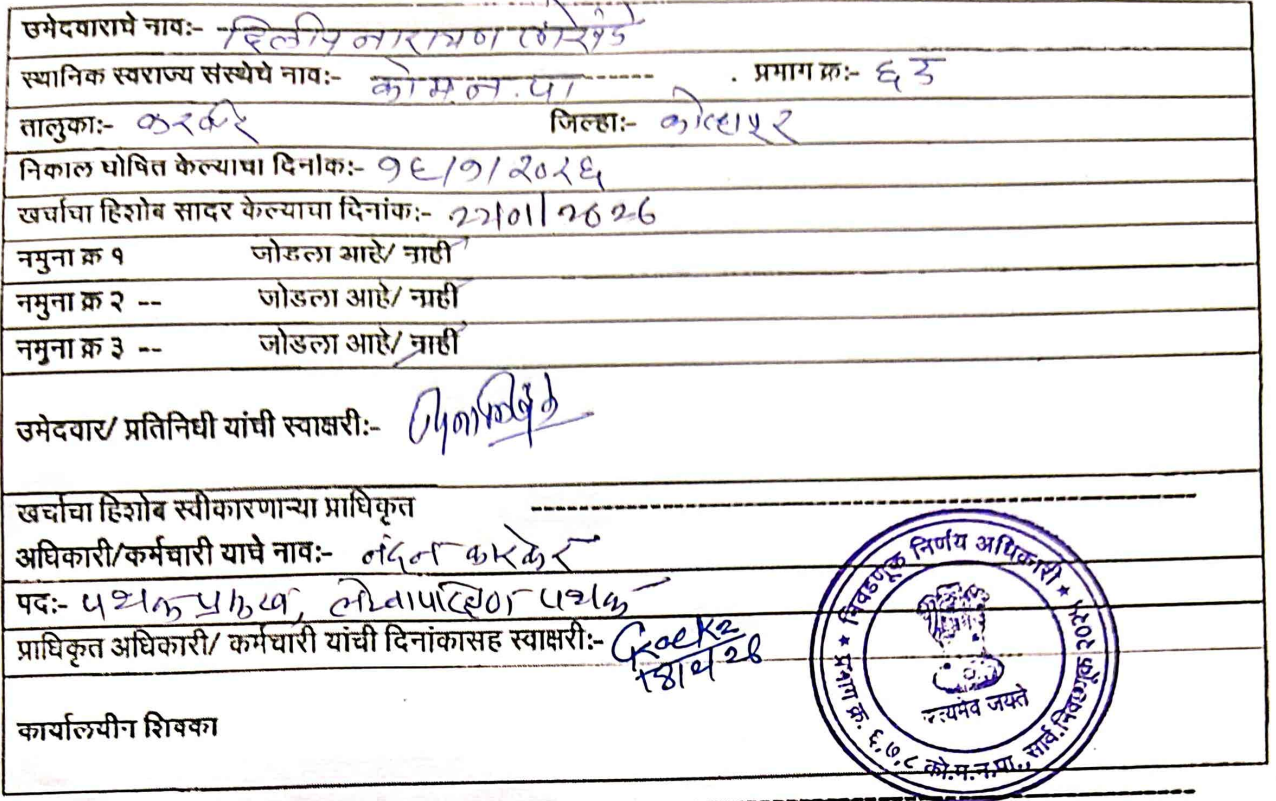 उमेदवाराचे नाव:- दिलीप नारायण लोखंडे
स्थानिक स्वराज्य संस्थेचे नाव:- को.म.न.पा . प्रभाग क्र:- ६ ड
तालुका:- करवीर जिल्हा:- कोल्हापूर
निकाल घोषित केल्याचा दिनांक:- १६/१/२०२६
खर्चाचा हिशोब सादर केल्याचा दिनांक:- 22/01/2026
नमुना क्र १ जोडला आहे/ नाही
नमुना क्र २ -- जोडला आहे/ नाही
नमुना क्र ३ -- जोडला आहे/ नाही
उमेदवार/ प्रतिनिधी यांची स्वाक्षरी:-
खर्चाचा हिशोब स्वीकारणाऱ्या प्राधिकृत
अधिकारी/कर्मचारी याचे नाव:- नंदन कारकेर
पद:- पथक प्रमुख, लेखापरिक्षण पथक
प्राधिकृत अधिकारी/ कर्मचारी यांची दिनांकासह स्वाक्षरी:-
कार्यालयीन शिक्का
★ निवडणूक निर्णय अधिकारी ★
प्रभाग क्र. ६,७,८ को.म.न.पा., सार्व.निवडणूक २०२५
सत्यमेव जयते